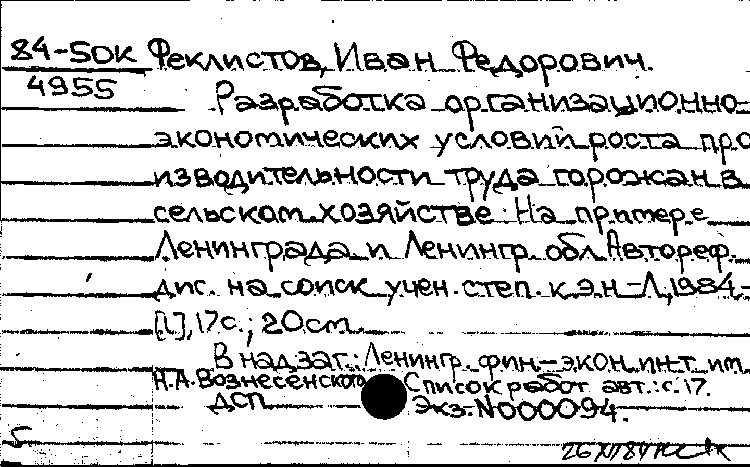 84-5ДК Феклистов, Иван Федорович.
4955
Разработка организационно-
экономических условий роста про
изводительности труда горожан в
сельском хозяйстве: На примере
Ленинграда и Ленингр. обл. Автореф.
дис. на соиск. учен. степ. к.э.н. -Л., 1984.-
[1], 17 с.; 20 см.
В надзаг.: Ленингр. фин.-экон. ин-т им.
Н.А. Вознесенского. Список работ авт.: с. 17.
ДСП Экз. N000094.